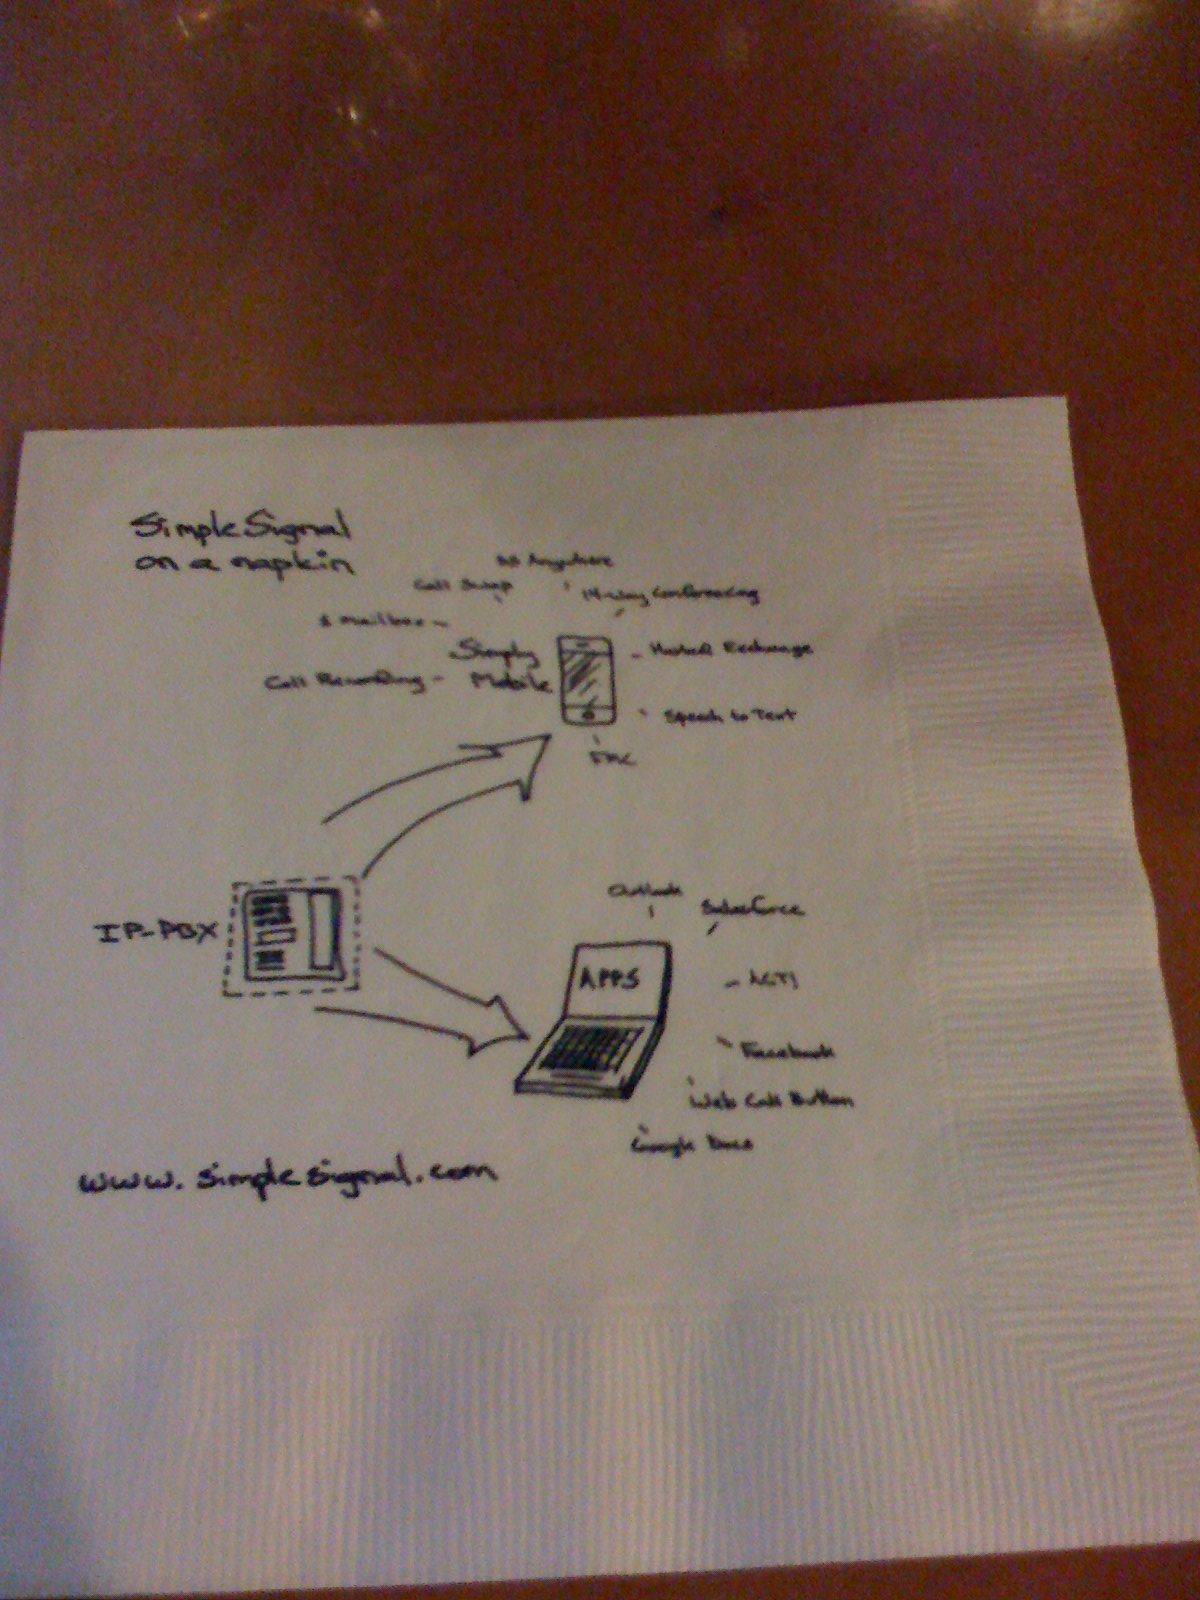 SimpleSignal
on a napkin
Anywhere
Call Swap
14-Way Conferencing
mailbox
Simply
Mobile
Hosted Exchange
Call Recording
Speech to Text
FMC
IP-PBX
Outlook
Salesforce
APPS
Facebook
Web Call Button
Google Docs
www.simplesignal.com